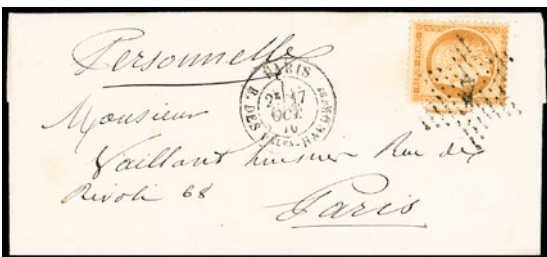 Personnelle
PARIS
2E 17
OCT
70
R. DES VLLES-HAUDRTTES
Monsieur
Vaillant huissier Rue de
Rivoli 68
Paris